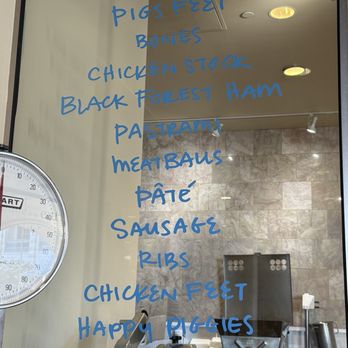 PIGS FEET
BONES
CHICKEN STOCK
BLACK FOREST HAM
PASTRAMI
MEATBALLS
PÂTÉ
SAUSAGE
RIBS
CHICKEN FEET
HAPPY PIGGIES
0
10
20
30
40
50
90